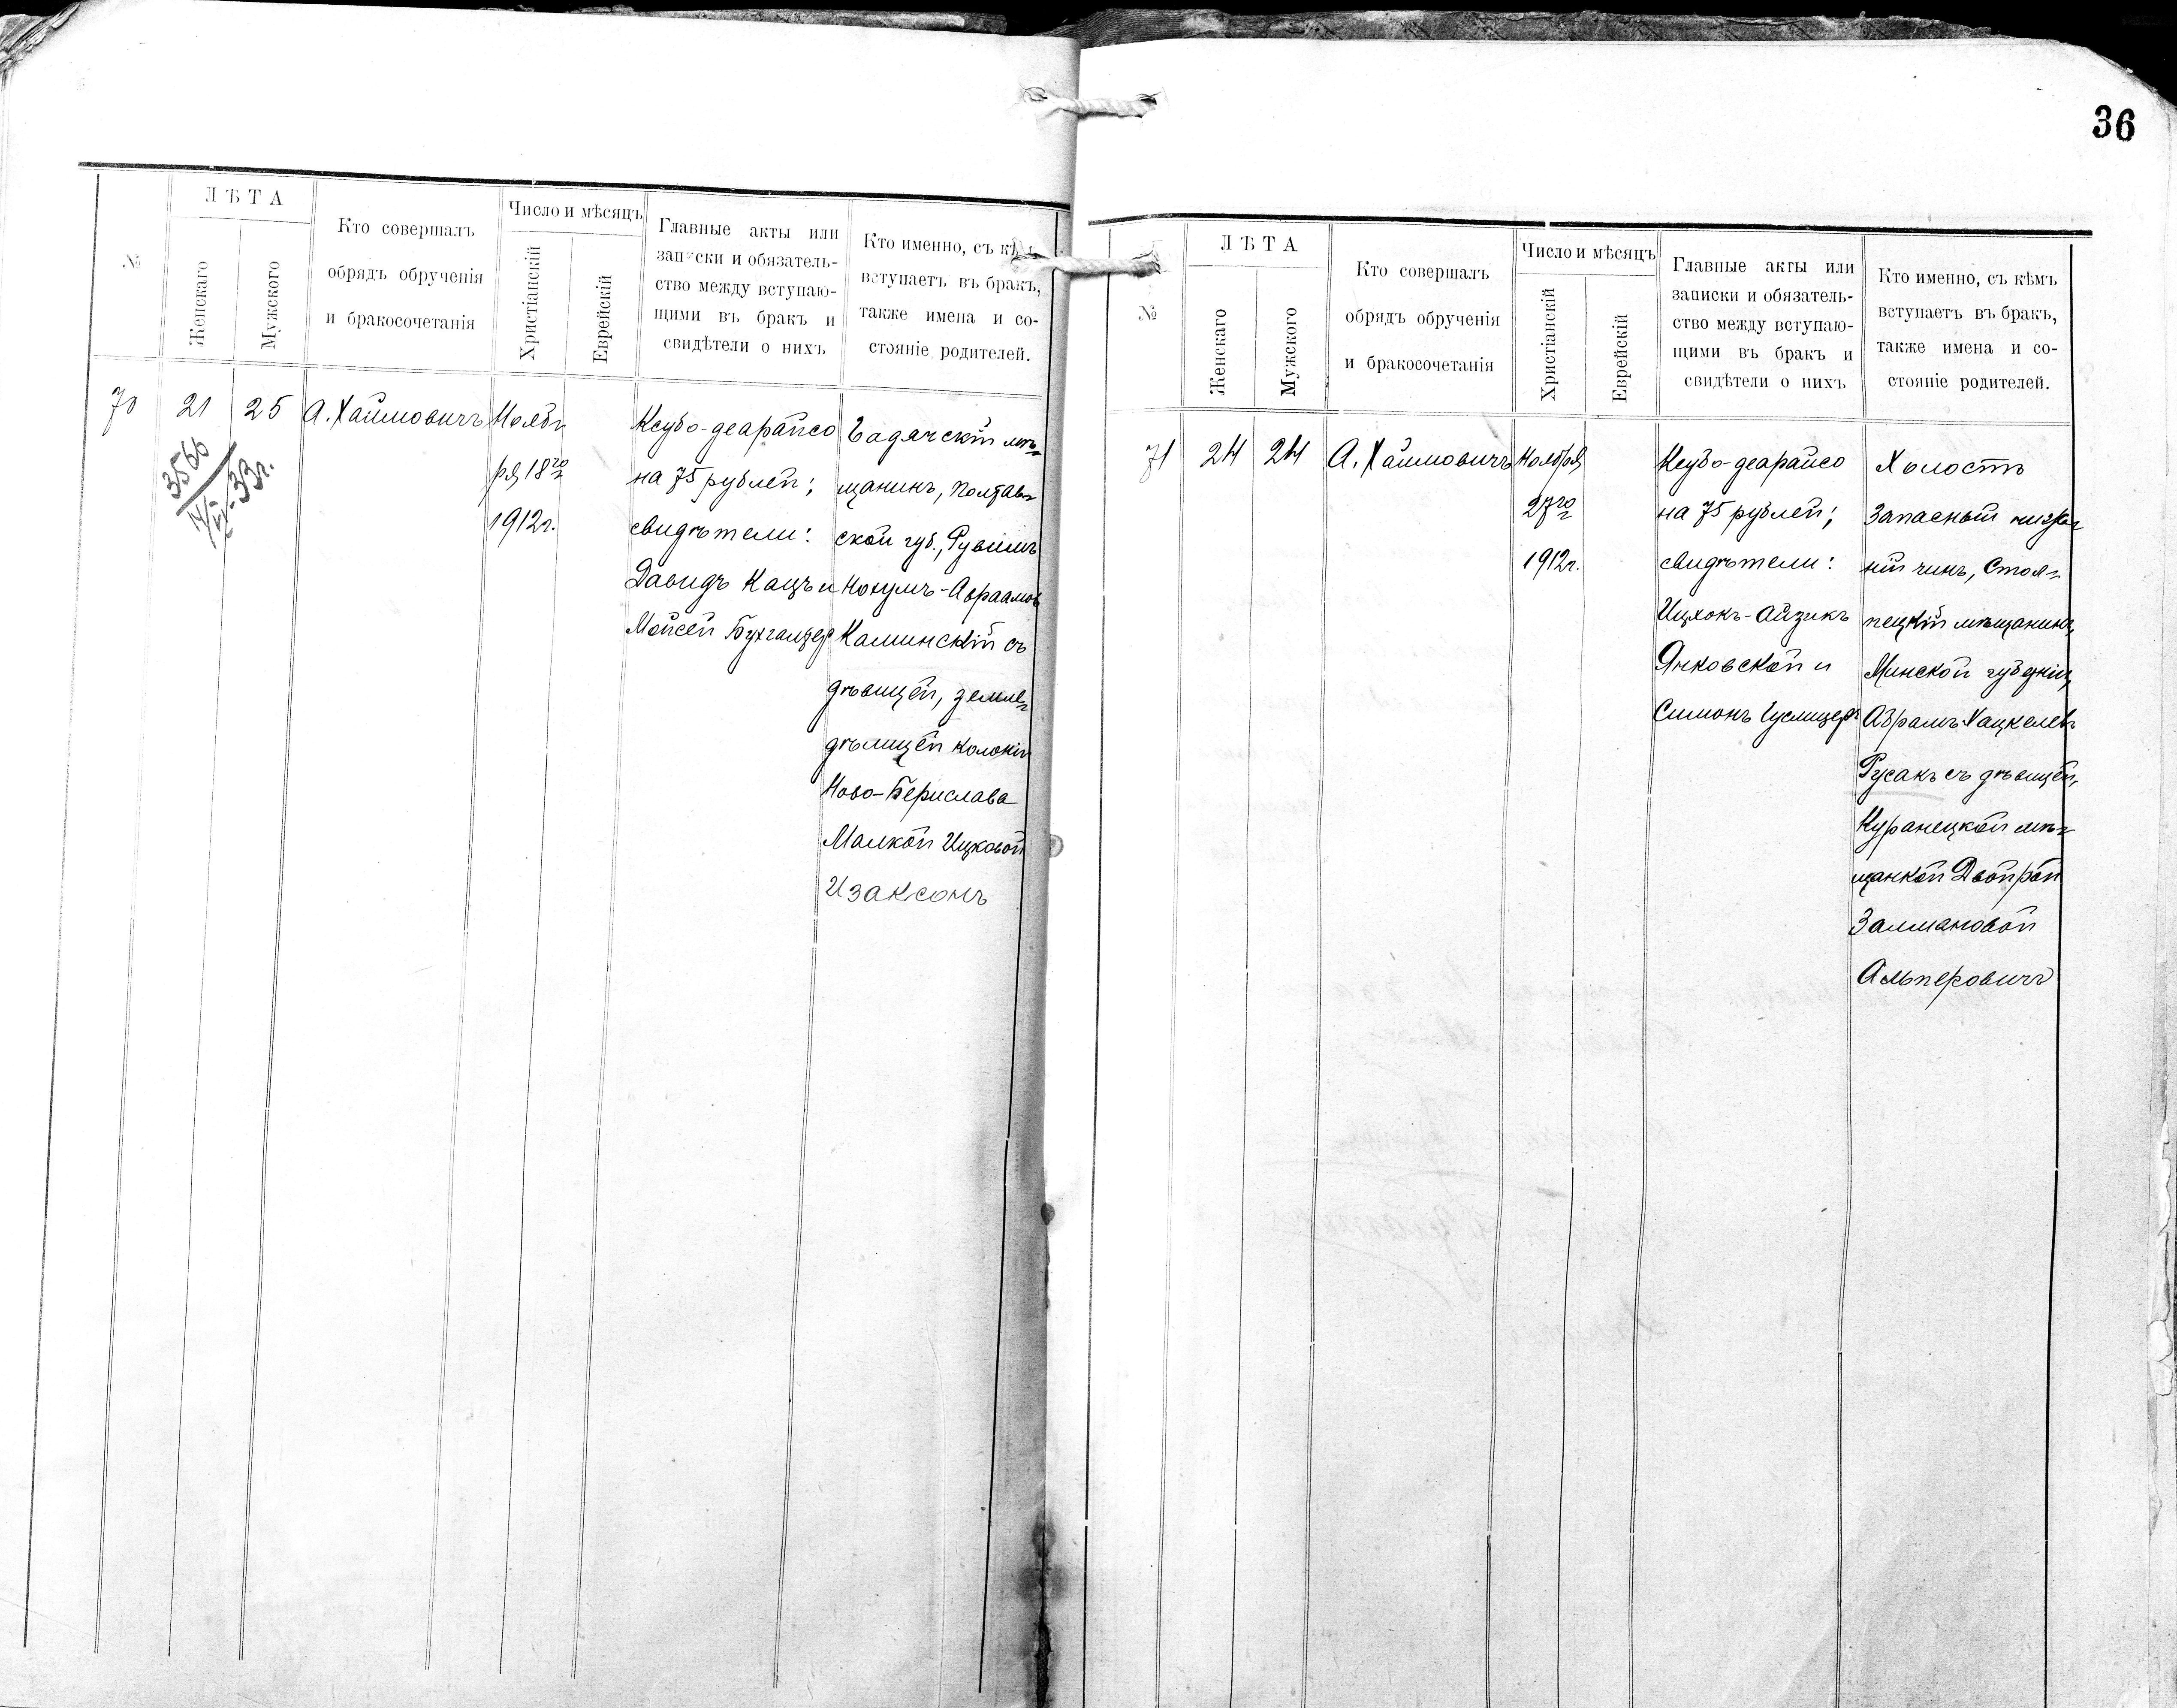 36
№
ЛѢТА
Женскаго
Мужского
Кто совершалъ
обрядъ обрученія
и бракосочетанія
Число и мѣсяцъ
Христіанскій
Еврейскій
Главные акты или
записки и обязатель-
ство между вступаю-
щими въ бракъ и
свидѣтели о нихъ
Кто именно, съ кѣмъ
вступаетъ въ бракъ,
также имена и со-
стояніе родителей.
70
21
25
3566
14/VI-33г.
А. Хаимовичъ
Нояб=
ря 18го
1912г.
Ксубо-деарайсо
на 75 рублей;
свидѣтели:
Давидъ Кацъ и
Мойсей Бухгалтеръ
Гадячскій мѣ=
щанинъ, Полтав=
ской губ., Рувимъ
Нохумъ-Авраамовъ
Каминскій съ
дѣвицей, земле=
дѣлицей колоніи
Ново-Берислава
Малкой Ицковой
Изаксонъ
№
ЛѢТА
Женскаго
Мужского
Кто совершалъ
обрядъ обрученія
и бракосочетанія
Число и мѣсяцъ
Христіанскій
Еврейскій
Главные акты или
записки и обязатель-
ство между вступаю-
щими въ бракъ и
свидѣтели о нихъ
Кто именно, съ кѣмъ
вступаетъ въ бракъ,
также имена и со-
стояніе родителей.
71
24
24
А. Хаимовичъ
Ноября
27го
1912г.
Ксубо-деарайсо
на 75 рублей;
свидѣтели:
Ицхокъ-Айзикъ
Янковской и
Симонъ
Холостъ
Запасный ниж=
ній чинъ, Столп=
пецкій мѣщанинъ,
Минской губерніи,
Абрамъ Хацкелевъ
Русакъ съ дѣвицей,
Куранецкой мѣ=
щанкой Двойрой
Залмановой
Альперовичъ